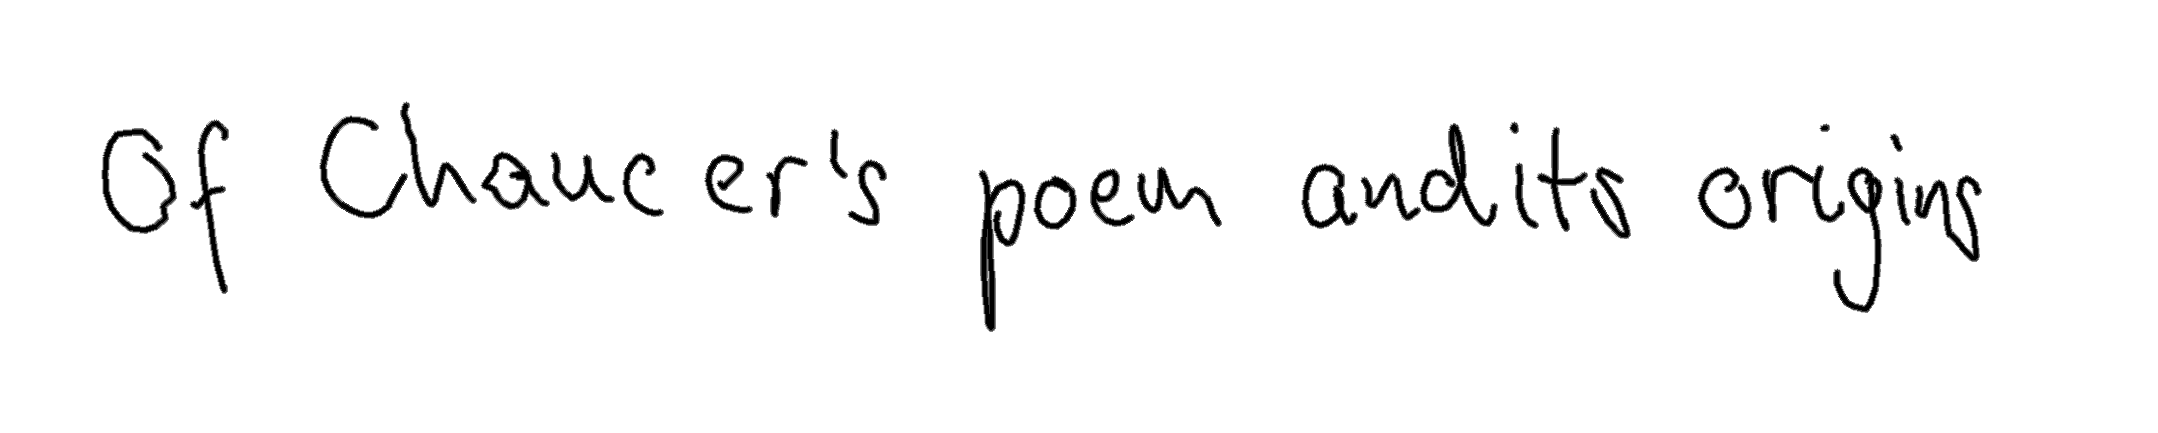 Of Chaucer's poem and its origins